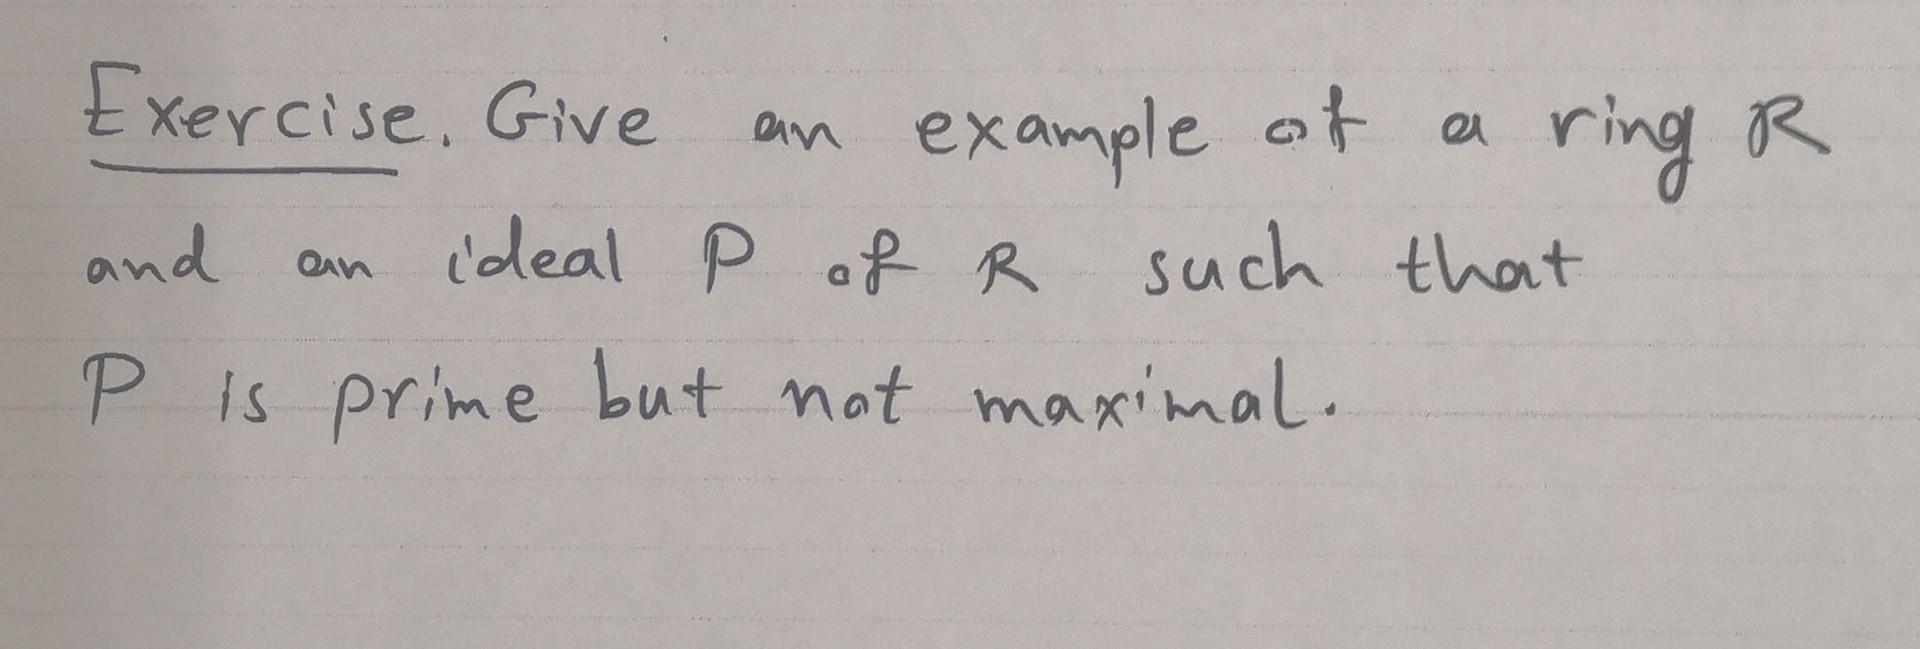 Exercise. Give an example of a ring R
and an ideal P of R such that
P is prime but not maximal.